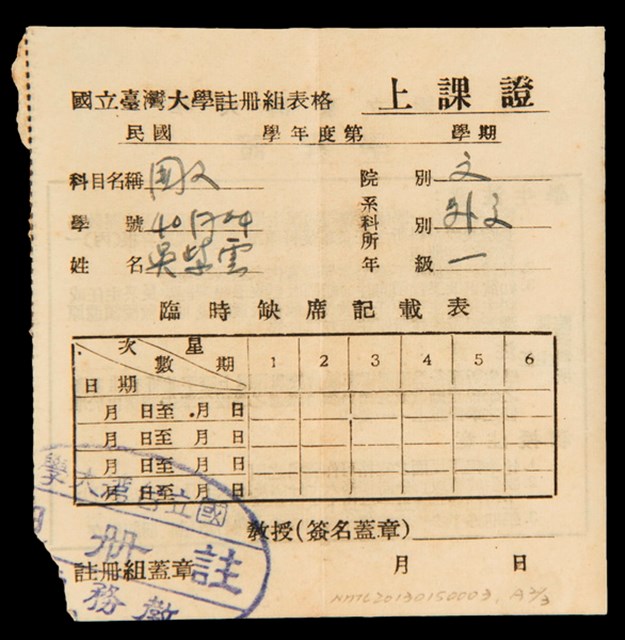 國立臺灣大學註冊組表格 上課證
民國 學年度第 學期
科目名稱 國文 院別 文
學號 401744 系科所別 外文
姓名 吳榮雲 年級 一
臨時缺席記載表
次數 星期 日期 1 2 3 4 5 6
月 日至 月 日
月 日至 月 日
月 日至 月 日
月 日至 月 日
國立台灣大學
註冊
教務
教授(簽名蓋章)
註冊組蓋章 月 日
NMTL20130150003. A 2/3